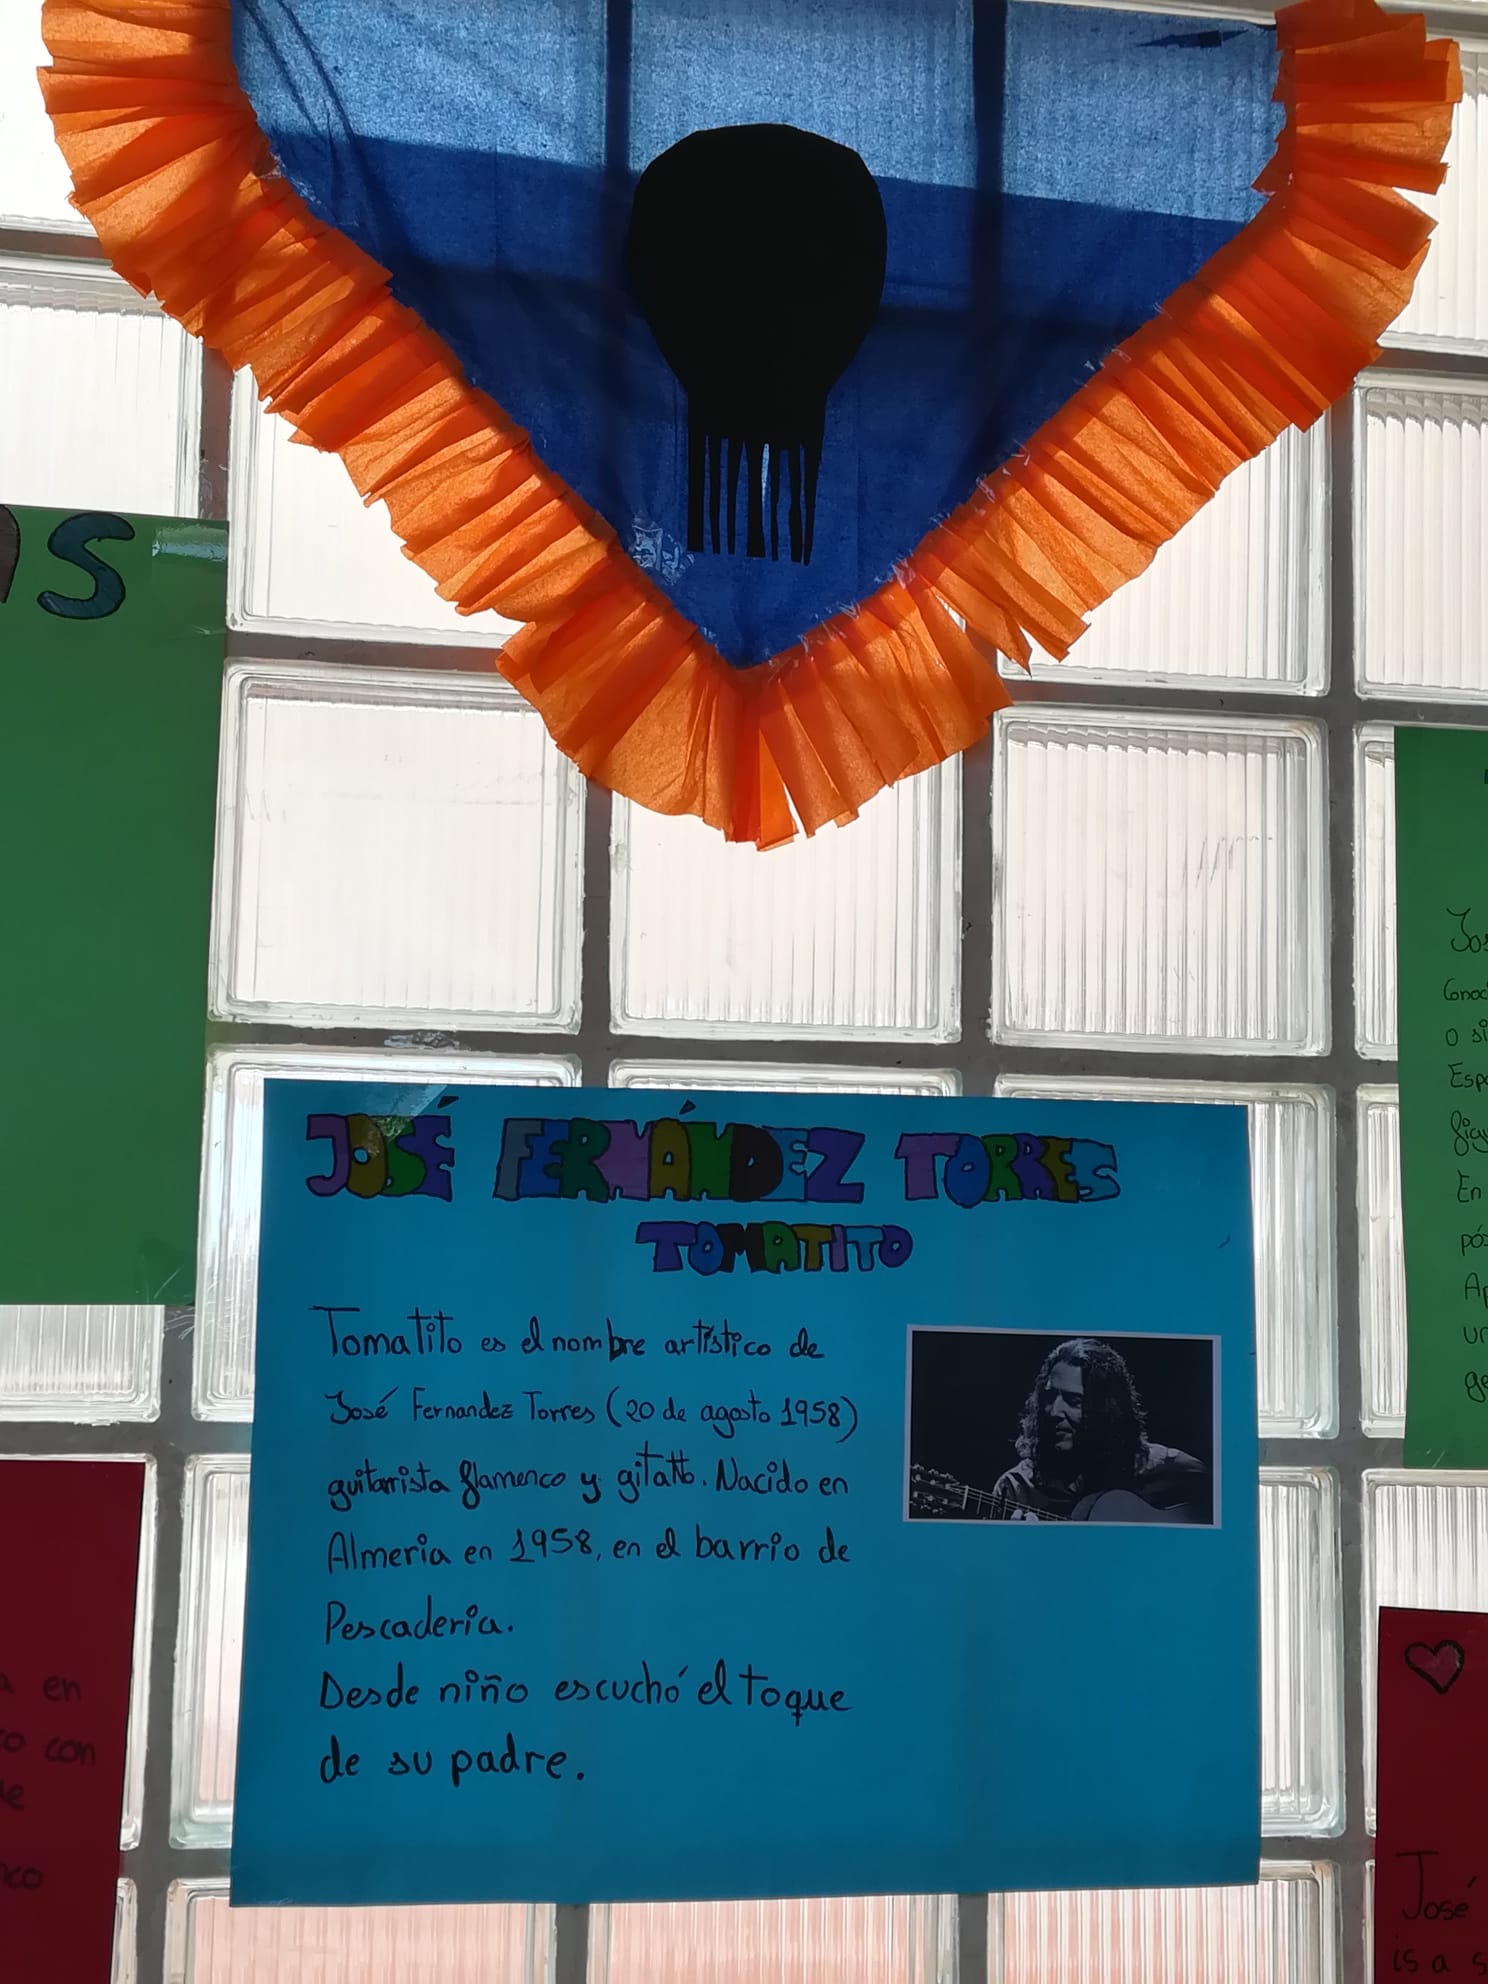 S
JOSÉ FERNÁNDEZ TORRES
TOMATITO
Tomatito es el nombre artístico de
José Fernandez Torres (20 de agosto 1958)
guitarrista flamenco y
Nacido en
Almeria en 1958, en el barrio de
Pescaderia.
Desde niño escuchó el toque
de su padre.
en
con
o si
En
José
is a